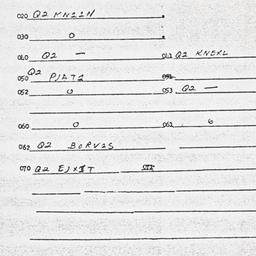 020 Q2 KN21N
030 0
040 Q2 — 043 Q2 KNEXL
050 Q2 PJAT2
052 0 053 Q2 —
060 0 061 6
062 Q2 BORV2S
070 Q2 EJXIT